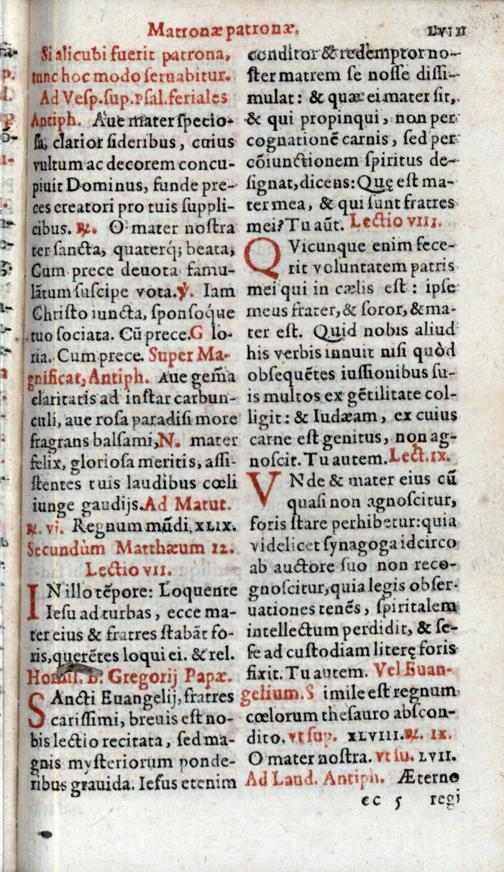 Matronæ patronæ. LVIII
Si alicubi fuerit patrona,
tunc hoc modo seruabitur.
Ad Vesp. sup. Psal. feriales
Antiph. Aue mater specio-
sa, clarior sideribus, cuius
vultum ac decorem concu-
piuit Dominus, funde pre-
ces creatori pro tuis suppli-
cibus. ℞. O mater nostra
ter sancta, quaterq; beata,
Cum prece deuota famu-
lãtum suscipe vota. ℣. Iam
Christo iuncta, sponsoque
tuo sociata. Cũ prece. G lo-
ria. Cum prece. Super Ma-
gnificat, Antiph. Aue gẽma
claritatis ad instar carbun-
culi, aue rosa paradisi more
fragrans balsami, N. mater
felix, gloriosa meritis, assi-
stentes tuis laudibus cœli
iunge gaudijs. Ad Matut.
℞. vi. Regnum mũdi, XLIX.
Secundùm Matthæum 12.
Lectio VII.
IN illo tẽpore: Loquente
Iesu ad turbas, ecce ma-
ter eius & fratres stabãt fo-
ris, querẽtes loqui ei. & rel.
Homil. B. Gregorij Papæ.
SAncti Euangelij, fratres
carissimi, breuis est no-
bis lectio recitata, sed ma-
gnis mysteriorum ponde-
ribus grauida. Iesus etenim
conditor & redemptor no-
ster matrem se nosse dissi-
mulat: & quæ ei mater sit,
& qui propinqui, non per
cognationẽ carnis, sed per
cõiunctionem spiritus de-
signat, dicens: Quę est ma-
ter mea, & qui sunt fratres
mei? Tu aũt. Lectio VIII.
QVicunque enim fece-
rit voluntatem patris
mei qui in cælis est: ipse
meus frater, & soror, & ma-
ter est. Quid nobis aliud
his verbis innuit nisi quòd
obsequẽtes iussionibus su-
is multos ex gẽtilitate col-
ligit: & Iudæam, ex cuius
carne est genitus, non ag-
noscit. Tu autem. Lect. IX.
VNde & mater eius cũ
quasi non agnoscitur,
foris stare perhibetur: quia
videlicet synagoga idcirco
ab auctore suo non reco-
gnoscitur, quia legis obser-
uationes tenẽs, spiritalem
intellectum perdidit, & se-
se ad custodiam literę foris
fixit. Tu autem. Vel Euan-
gelium. S imile est regnum
cœlorum thesauro abscon-
dito. vt sup. XLVIII. ℞. IX.
O mater nostra. vt su. LVII.
Ad Laud. Antiph. Æterno
ec 5 regi